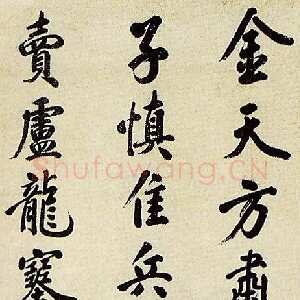 金天方肅
子慎佳兵
賣盧龍塞
Shufawang.CN